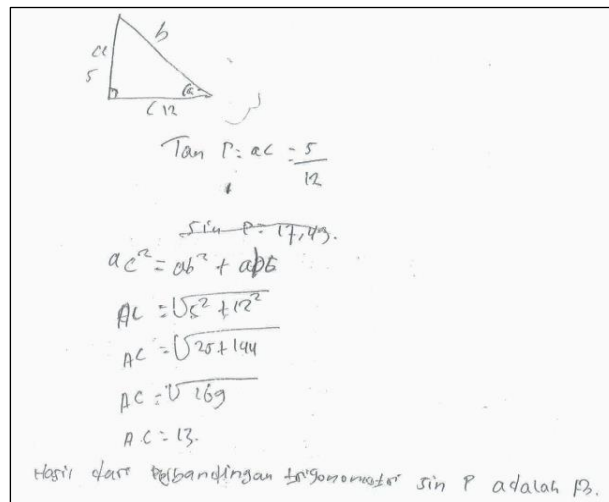 a
b
5
c 12
Tan P = ac = 5
12
Sin P = 17,43.
ac² = ab² +
AC = √5² + 12²
AC = √25 + 144
AC = √169
AC = 13.
Hasil dari Perbandingan trigonometri sin P adalah 13.